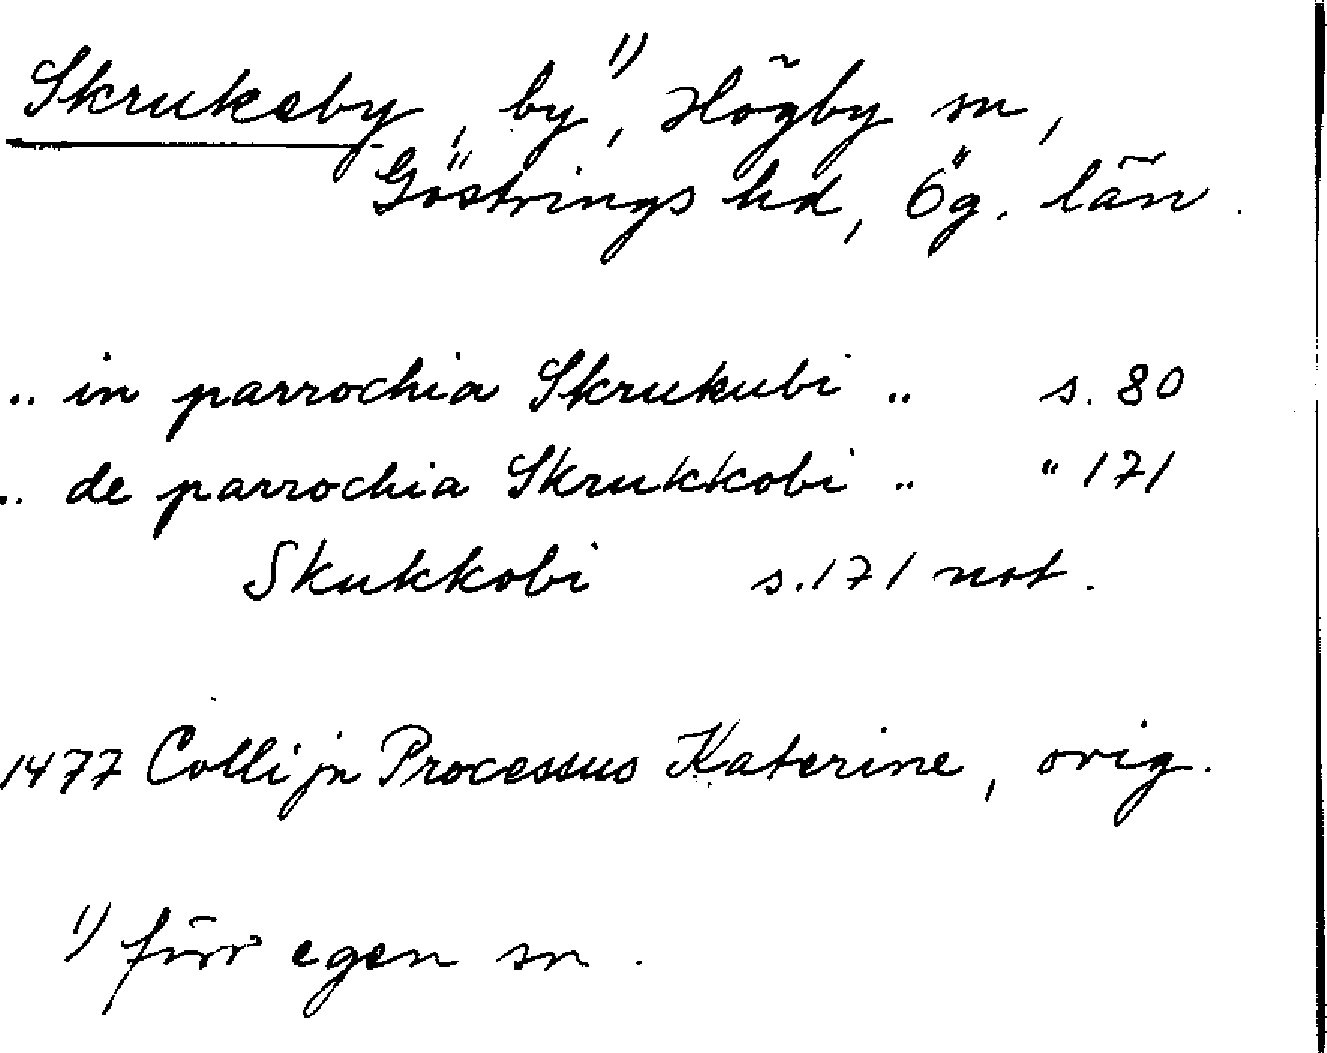 Skrukeby, by 1), Högby sn,
Göstrings hd, Ög. län.
.. in parrochia Skrukubi .. s. 80
.. de parrochia Skrukkobi .. " 171
Skukkobi s. 171 not.
1477 Collijn Processus Katerine, orig.
1) förr egen sn.